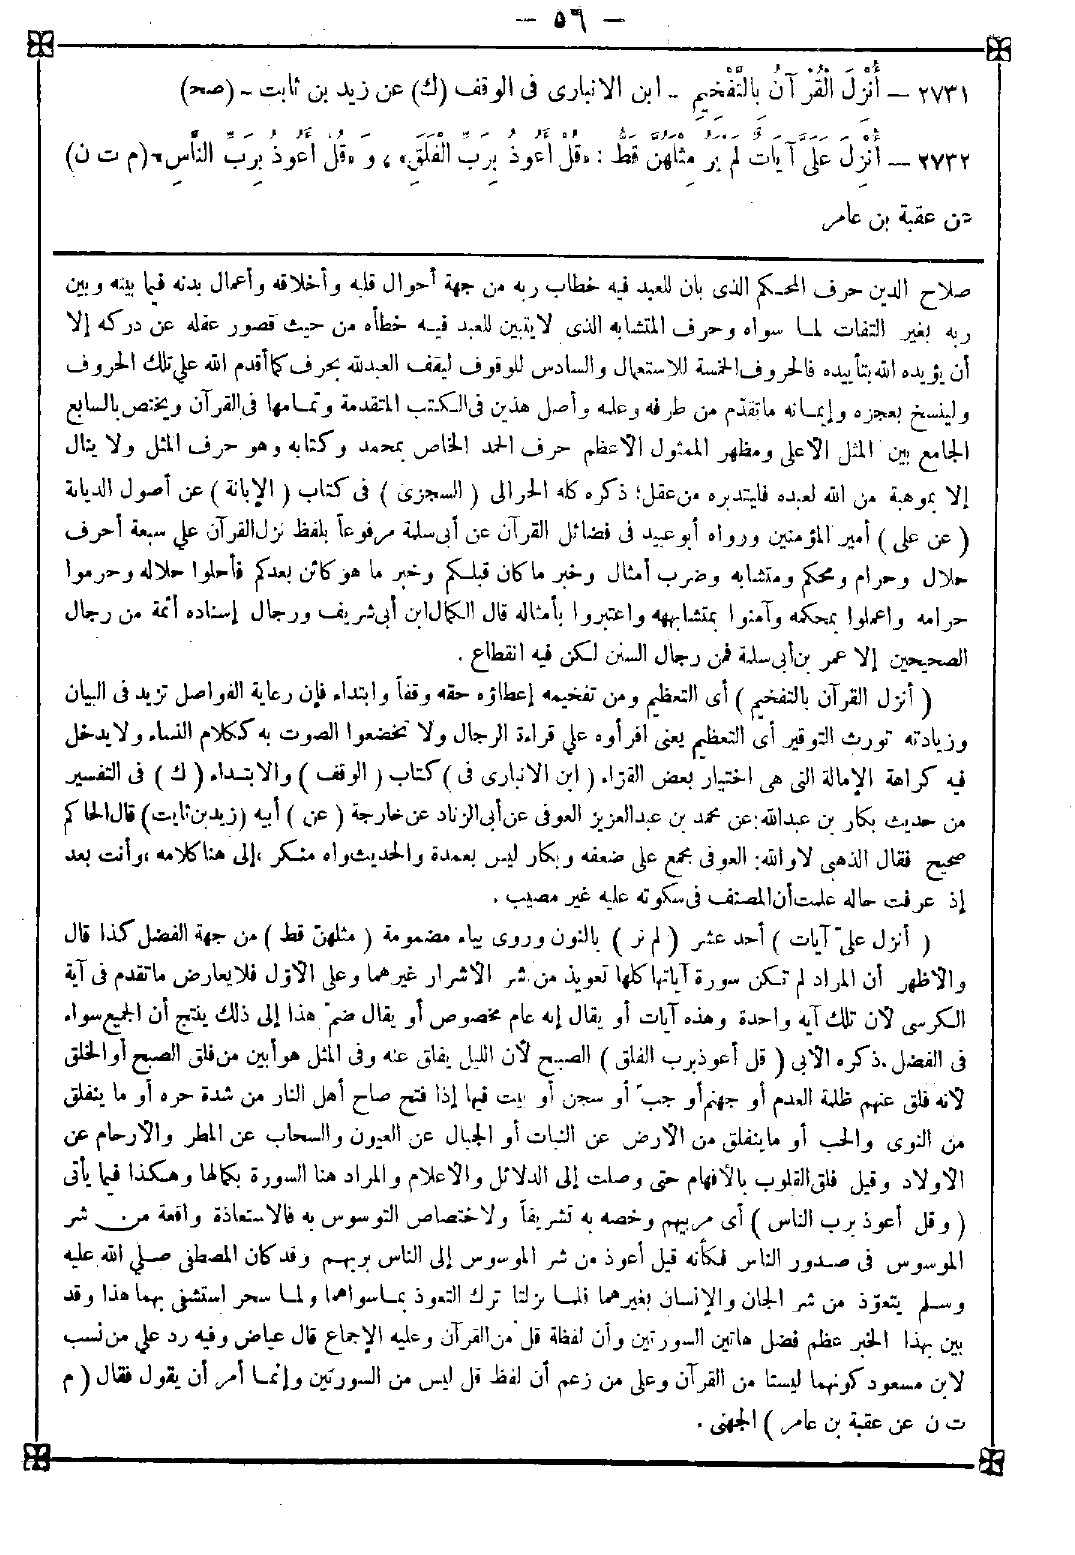 — ٥٦ —
٢٧٣١ — أُنْزِلَ الْقُرْآنُ بِالتَّفْخِيمِ - ابن الانبارى فى الوقف (ك) عن زيد بن ثابت - (صح)
٢٧٣٢ — أُنْزِلَ عَلَىَّ آيَاتٌ لَمْ يُرَ مِثْلُهُنَّ قَطُّ : «قُلْ أَعُوذُ بِرَبِّ الْفَلَقِ» ، وَ «قُلْ أَعُوذُ بِرَبِّ النَّاسِ» - (م ت ن)
عن عقبة بن عامر
صلاح الدين حرف المحكم الذى بان للعبد فيه خطاب ربه من جهة أحوال قلبه وأخلاقه وأعمال بدنه فيما بينه وبين
ربه بغير التفات لما سواه وحرف المتشابه الذى لايتبين للعبد فيه خطأه من حيث قصور عقله عن دركه إلا
أن يؤيده الله بتأييده فالحروف الخمسة للاستعمال والسادس للوقوف ليقف العبد لله بحرف كما أقدم الله على تلك الحروف
ولينسخ بعجزه وإيمانه ماتقدم من طرفه وعليه وأصل هذين فى الكتب المتقدمة وتمامها فى القرآن ويختص بالسابع
الجامع بين المثل الأعلى ومظهر الممثول الأعظم حرف الحمد الخاص بمحمد وكتابه وهو حرف المثل ولا ينال
إلا بموهبة من الله لعبده فليتدبره من عقل؛ ذكره كله الحرالى ( السجزى ) فى كتاب ( الإبانة ) عن أصول الديانة
( عن على ) أمير المؤمنين ورواه أبو عبيد فى فضائل القرآن عن أبى سلمة مرفوعاً بلفظ نزل القرآن على سبعة أحرف
حلال وحرام ومحكم ومتشابه وضرب أمثال وخبر ما كان قبلكم وخبر ما هو كائن بعدكم فأحلوا حلاله وحرموا
حرامه واعملوا بمحكمه وآمنوا بمتشابهه واعتبروا بأمثاله قال الكمال ابن أبى شريف ورجال إسناده أئمة من رجال
الصحيحين إلا عمر بن أبى سلمة فمن رجال السنن لكن فيه انقطاع .
( أنزل القرآن بالتفخيم ) أى التعظيم ومن تفخيمه إعطاؤه حقه وقفاً وابتداء فإن رعاية الفواصل تزيد فى البيان
وزيادته تورث التوقير أى التعظيم يعنى اقرأوه على قراءة الرجال ولا تخضعوا الصوت به ككلام النساء ولا يدخل
فيه كراهة الإمالة التى هى اختيار بعض القراء ( ابن الانبارى فى ) كتاب ( الوقف ) والابتداء ( ك ) فى التفسير
من حديث بكار بن عبدالله؛ عن محمد بن عبدالعزيز العوفى عن أبى الزناد عن خارجة ( عن ) أبيه (زيد بن ثابت) قال الحاكم
صحيح فقال الذهبى لاوالله؛ العوفى مجمع على ضعفه وبكار ليس بعمدة والحديث واه منكر ،إلى هنا كلامه ،وأنت بعد
إذ عرفت حاله علمت أن المصنف فى سكوته عليه غير مصيب .
( أنزل علىّ آيات ) أحد عشر ( لم نر ) بالنون وروى بياء مضمومة ( مثلهنّ قط ) من جهة الفضل كذا قال
والأظهر أن المراد لم تكن سورة آياتها كلها تعويذ من شر الأشرار غيرهما وعلى الأوّل فلا يعارض ماتقدم فى آية
الكرسى لأن تلك آيه واحدة وهذه آيات أو يقال إنه عام مخصوص أو يقال ضمّ هذا إلى ذلك ينتج أن الجميع سواء
فى الفضل .ذكره الأبى ( قل أعوذ برب الفلق ) الصبح لأن الليل يفلق عنه وفى المثل هو أبين من فلق الصبح أو الخلق
لأنه فلق عنهم ظلمة العدم أو جهنم أو جبّ أو سجن أو بيت فيها إذا فتح صاح أهل النار من شدة حره أو ما ينفلق
من النوى والحب أو ماينفلق من الأرض عن النبات أو الجبال عن العيون والسحاب عن المطر والأرحام عن
الأولاد وقيل فلق القلوب بالأفهام حتى وصلت إلى الدلائل والأعلام والمراد هنا السورة بكمالها وهكذا فيما يأتى
( وقل أعوذ برب الناس ) أى مربيهم وخصه به تشريفاً ولاختصاص التوسوس به فالاستعاذة واقعة من شر
الموسوس فى صدور الناس فكأنه قيل أعوذ من شر الموسوس إلى الناس بربهم وقد كان المصطفى صلى الله عليه
وسلم يتعوّذ من شر الجان والإنسان بغيرهما فلما نزلتا ترك التعوذ بما سواهما ولما سحر استشفى بهما هذا وقد
بين بهذا الخبر عظم فضل هاتين السورتين وأن لفظة قل من القرآن وعليه الإجماع قال عياض وفيه رد على من نسب
لابن مسعود كونهما ليستا من القرآن وعلى من زعم أن لفظ قل ليس من السورتين وإنما أمر أن يقول فقال ( م
ت ن عن عقبة بن عامر ) الجهنى .